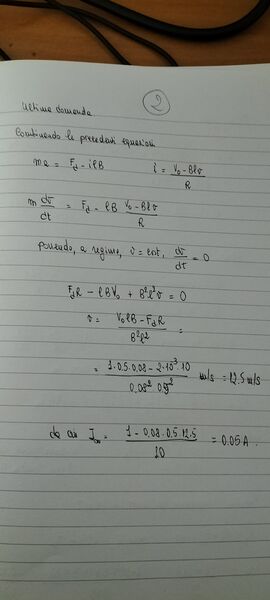 2
Ultima domanda
Combinando le precedenti equazioni
ma = Fd - ilB i = (V0 - Blv)/R
m dv/dt = Fd - lB (V0 - Blv)/R
ponendo, a regime, v = cost, dv/dt = 0
FdR - lBV0 + B²l²v = 0
v = (V0lB - FdR)/(B²l²) =
= (1·0.5·0.08 - 2·10⁻³·10)/(0.08² 0.5²) m/s = 12.5 m/s
da cui I∞ = (1 - 0.08·0.5·12.5)/10 = 0.05 A.